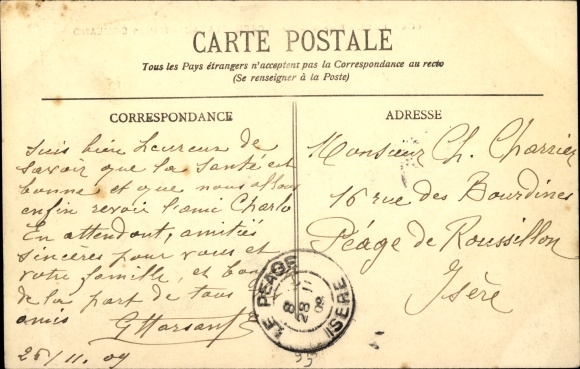 CARTE POSTALE
Tous les Pays étrangers n'acceptent pas la Correspondance au recto
(Se renseigner à la Poste)
CORRESPONDANCE
suis bien heureux de
savoir que la santé est
bonne et que nous allons
enfin revoir l'ami Charlo
En attendant, amitiés
sincères pour vous et
votre famille, et
de la part de tous
amis
25/11.09
ADRESSE
Monsieur Ch. Charrier
16 rue des Bourdines
Péage de Roussillon
Isère
LE PEAGE
8
28 11
ISERE